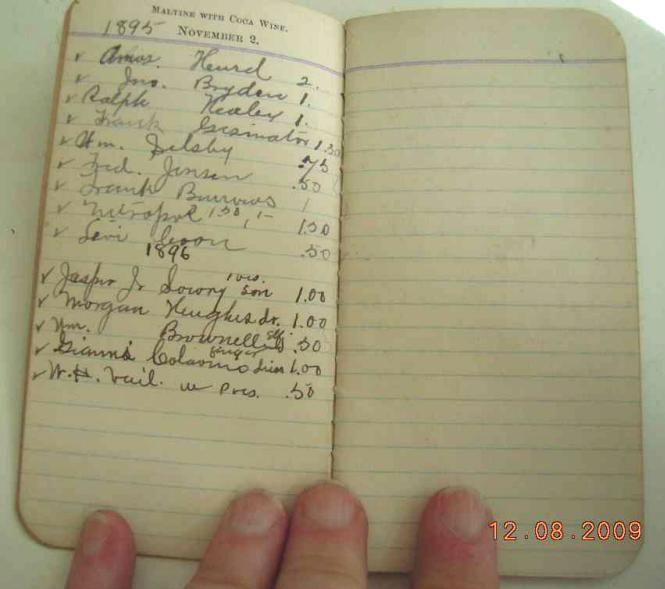 MALTINE WITH COCA WINE.
1895 NOVEMBER 2.
✓ Amos Heurd 2.
✓ Jno. Bryden 1.
✓ Ralph Healey 1.
✓ Frank 1.50
✓ Wm. Selsby .75
✓ Fred. Jensen .50
✓ Frank Burrows 1
✓ Metropol 1.50, 1- 1.50
✓ Levi .50
1896
✓ Jasper Jr Lowry son 1.00
✓ Morgan Hughes dr. 1.00
✓ Wm. Brownell .50
✓ Colavino 1.00
✓ W.H. Vail. w pres. .50
12.08.2009